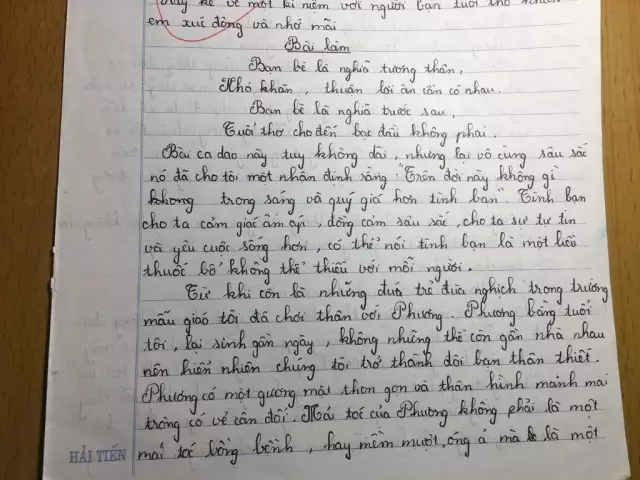 Hãy kể về một kỉ niệm với người bạn tuổi thơ khiến
em xúc động và nhớ mãi
Bài làm
Bạn bè là nghĩa tương thân,
Khó khăn, thuận lợi ân cần có nhau.
Bạn bè là nghĩa trước sau,
Tuổi thơ cho đến bạc đầu không phai.
Bài ca dao này tuy không dài, nhưng lại vô cùng sâu sắc
nó đã cho tôi một nhận định rằng: "Trên đời này không gì
không trong sáng và quý giá hơn tình bạn". Tình bạn
cho ta cảm giác ấm áp, đồng cảm sâu sắc, cho ta sự tự tin
và yêu cuộc sống hơn, có thể nói tình bạn là một liều
thuốc bổ không thể thiếu với mỗi người.
Từ khi còn là những đứa trẻ đùa nghịch trong trường
mẫu giáo tôi đã chơi thân với Phương. Phương bằng tuổi
tôi, lại sinh gần ngày, không những thế còn gần nhà nhau
nên hiển nhiên chúng tôi trở thành đôi bạn thân thiết.
Phương có một gương mặt thon gọn và thân hình mảnh mai
trông có vẻ cân đối. Mái tóc của Phương không phải là một
mái tóc bồng bềnh, hay mềm mượt, óng ả mà là một
HẢI TIẾN